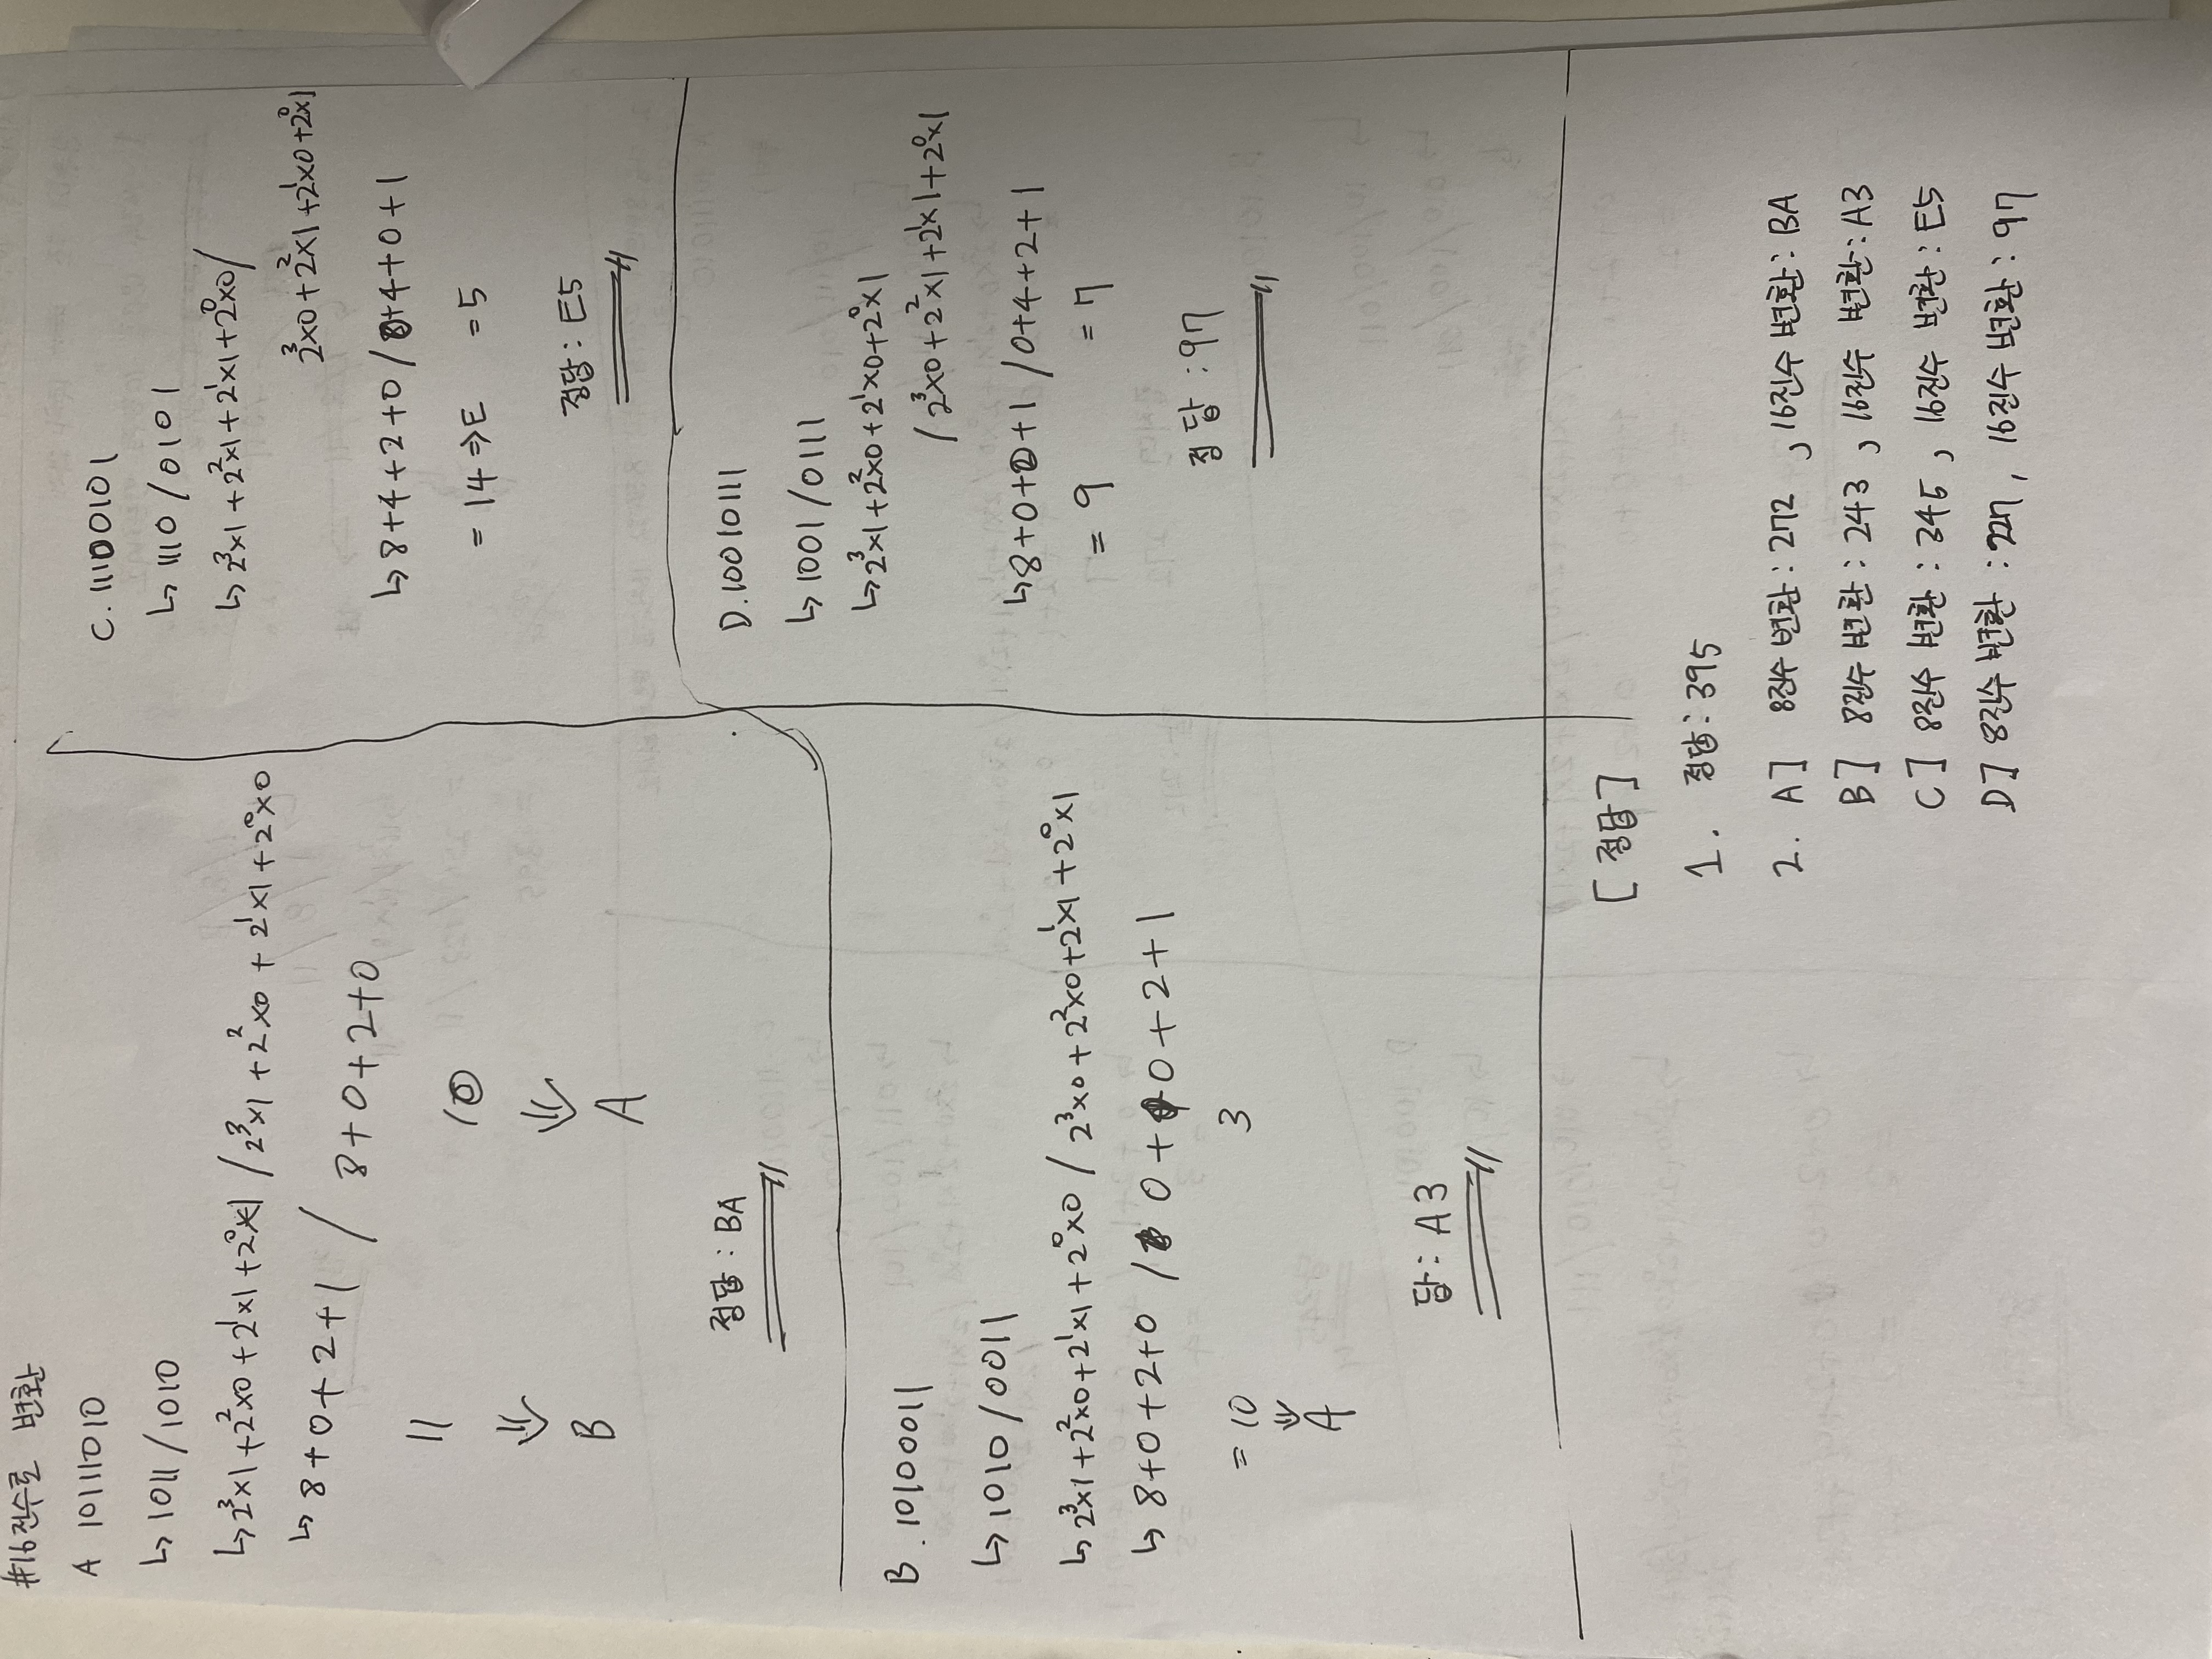 #16진수로 변환
A 10111010
↳ 1011 / 1010
↳ 2³×1 + 2²×0 + 2¹×1 + 2⁰×1 / 2³×1 + 2²×0 + 2¹×1 + 2⁰×0
↳ 8+0+2+1 / 8+0+2+0
11 10
⇓ ⇓
B A
정답 : BA
B. 10100011
↳ 1010 / 0011
↳ 2³×1 + 2²×0 + 2¹×1 + 2⁰×0 / 2³×0 + 2²×0 + 2¹×1 + 2⁰×1
↳ 8+0+2+0 / 0+0+2+1
= 10 3
⇓
A
답 : A3
C. 11100101
↳ 1110 / 0101
↳ 2³×1 + 2²×1 + 2¹×1 + 2⁰×0 /
2³×0 + 2²×1 + 2¹×0 + 2⁰×1
↳ 8+4+2+0 / 0+4+0+1
= 14 ⇒ E = 5
정답 : E5
D. 10010111
↳ 1001 / 0111
↳ 2³×1 + 2²×0 + 2¹×0 + 2⁰×1
/ 2³×0 + 2²×1 + 2¹×1 + 2⁰×1
↳ 8+0+0+1 / 0+4+2+1
= 9 = 7
정답 : 97
[정답]
1. 정답 : 395
2. A] 8진수 변환 : 272 , 16진수 변환 : BA
B] 8진수 변환 : 243 , 16진수 변환 : A3
C] 8진수 변환 : 345 , 16진수 변환 : E5
D] 8진수 변환 : 227 , 16진수 변환 : 97